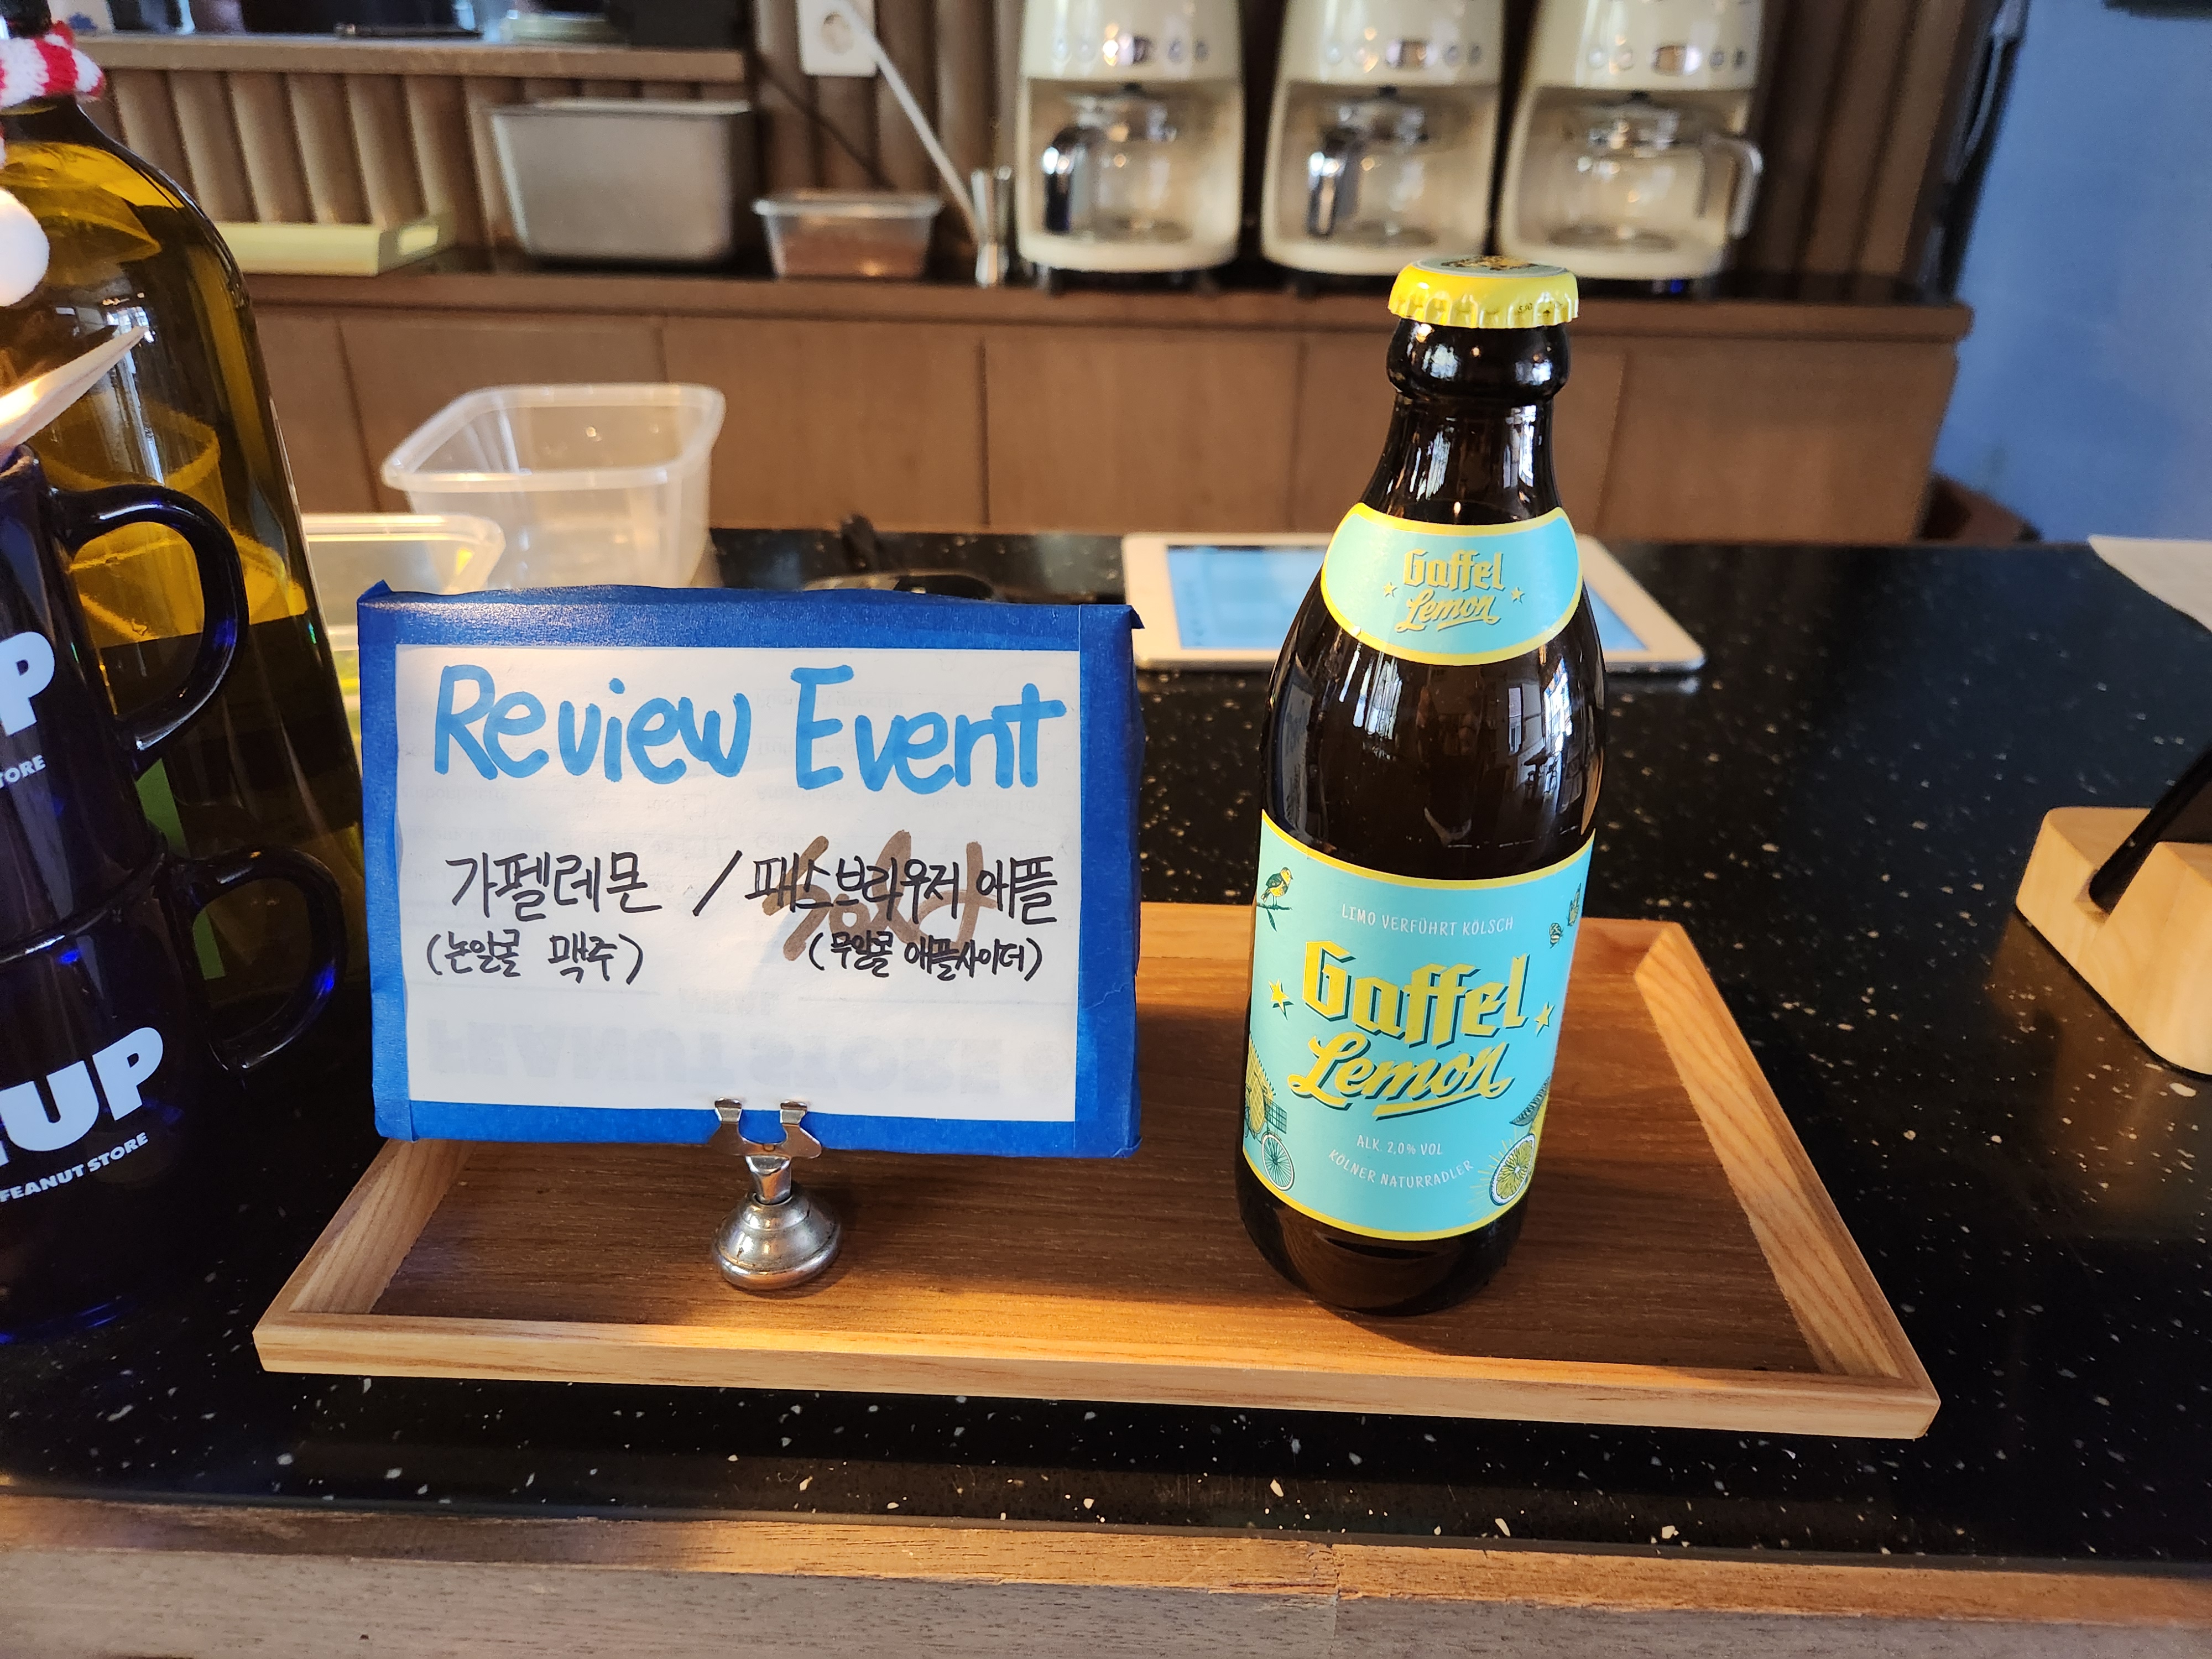 Review Event
가펠레몬 / 패스브라우저 애플
(논알콜 맥주) (무알콜 애플사이더)
Gaffel
Lemon
LIMO VERFÜHRT KÖLSCH
Gaffel
Lemon
ALK. 2,0% VOL
KÖLNER NATURRADLER
P
TORE
UP
FEANUT STORE